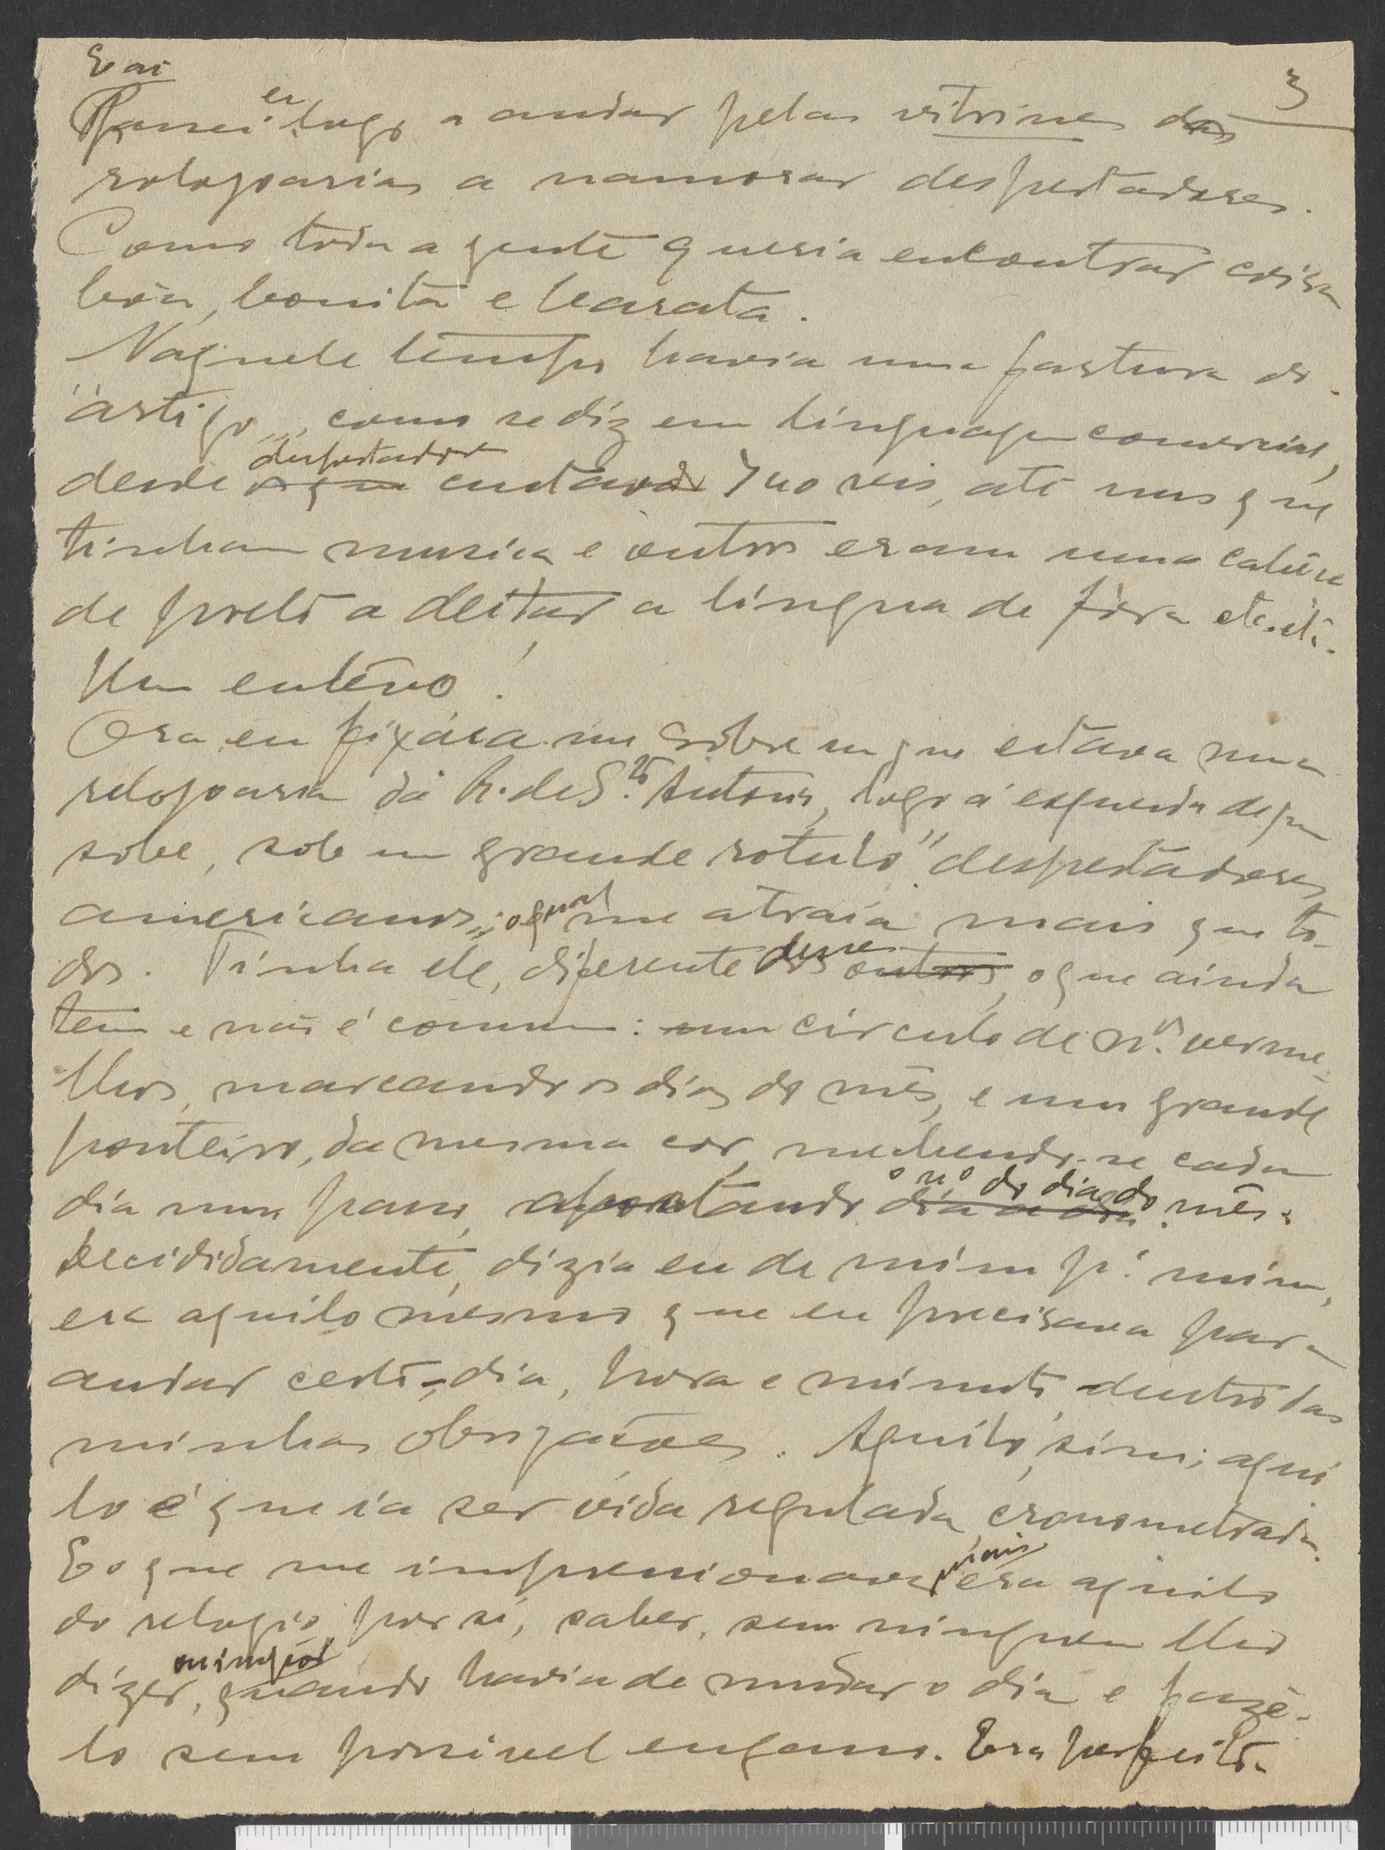 E aí
3
Passei eu logo a andar pelas vitrines das
relojoarias a namorar despertadores.
Como toda a gente queria encontrar coisa
bôa, bonita e barata.
Naquele tempo havia uma fartura do
"artigo", como se diz em linguagem comercial,
despertador
desde os que custavam 700 reis, até uns que
tinham musica e outros eram uma cabêça
de preto a deitar a lingua de fóra etc. etc.
Um enlêvo!
Ora eu fixára-me sobre um que estava numa
relojoaria da R. de S.to Antonio, logo á esquerda de quem
sobe, sob um grande rotulo "despertadores
americanos"; o qual me atraía mais que to-
dos. Tinha ele, diferente dos outros, o que ainda
tem e não é comum: um circulo de n.os verme-
lhos, marcando os dias do mês, e um grande
ponteiro, da mesma côr, mechendo-se cada
o nº do dia do
dia um passo, apontando dia a dia mês.
Decididamente, dizia eu de mim p.a mim,
era aquilo mesmo que eu precisava para
andar certo, dia, hora e minuto, dentro das
minhas obrigações. Aquilo, sim; aqui
lo é que ia ser vida regulada, cronometrada.
E o que me impressionava mais era aquilo
do relogio, por si, saber, sem ninguem lho
dizer, quando havia de mudar o dia e fazê-
lo sem possivel engano. Era perfeito.